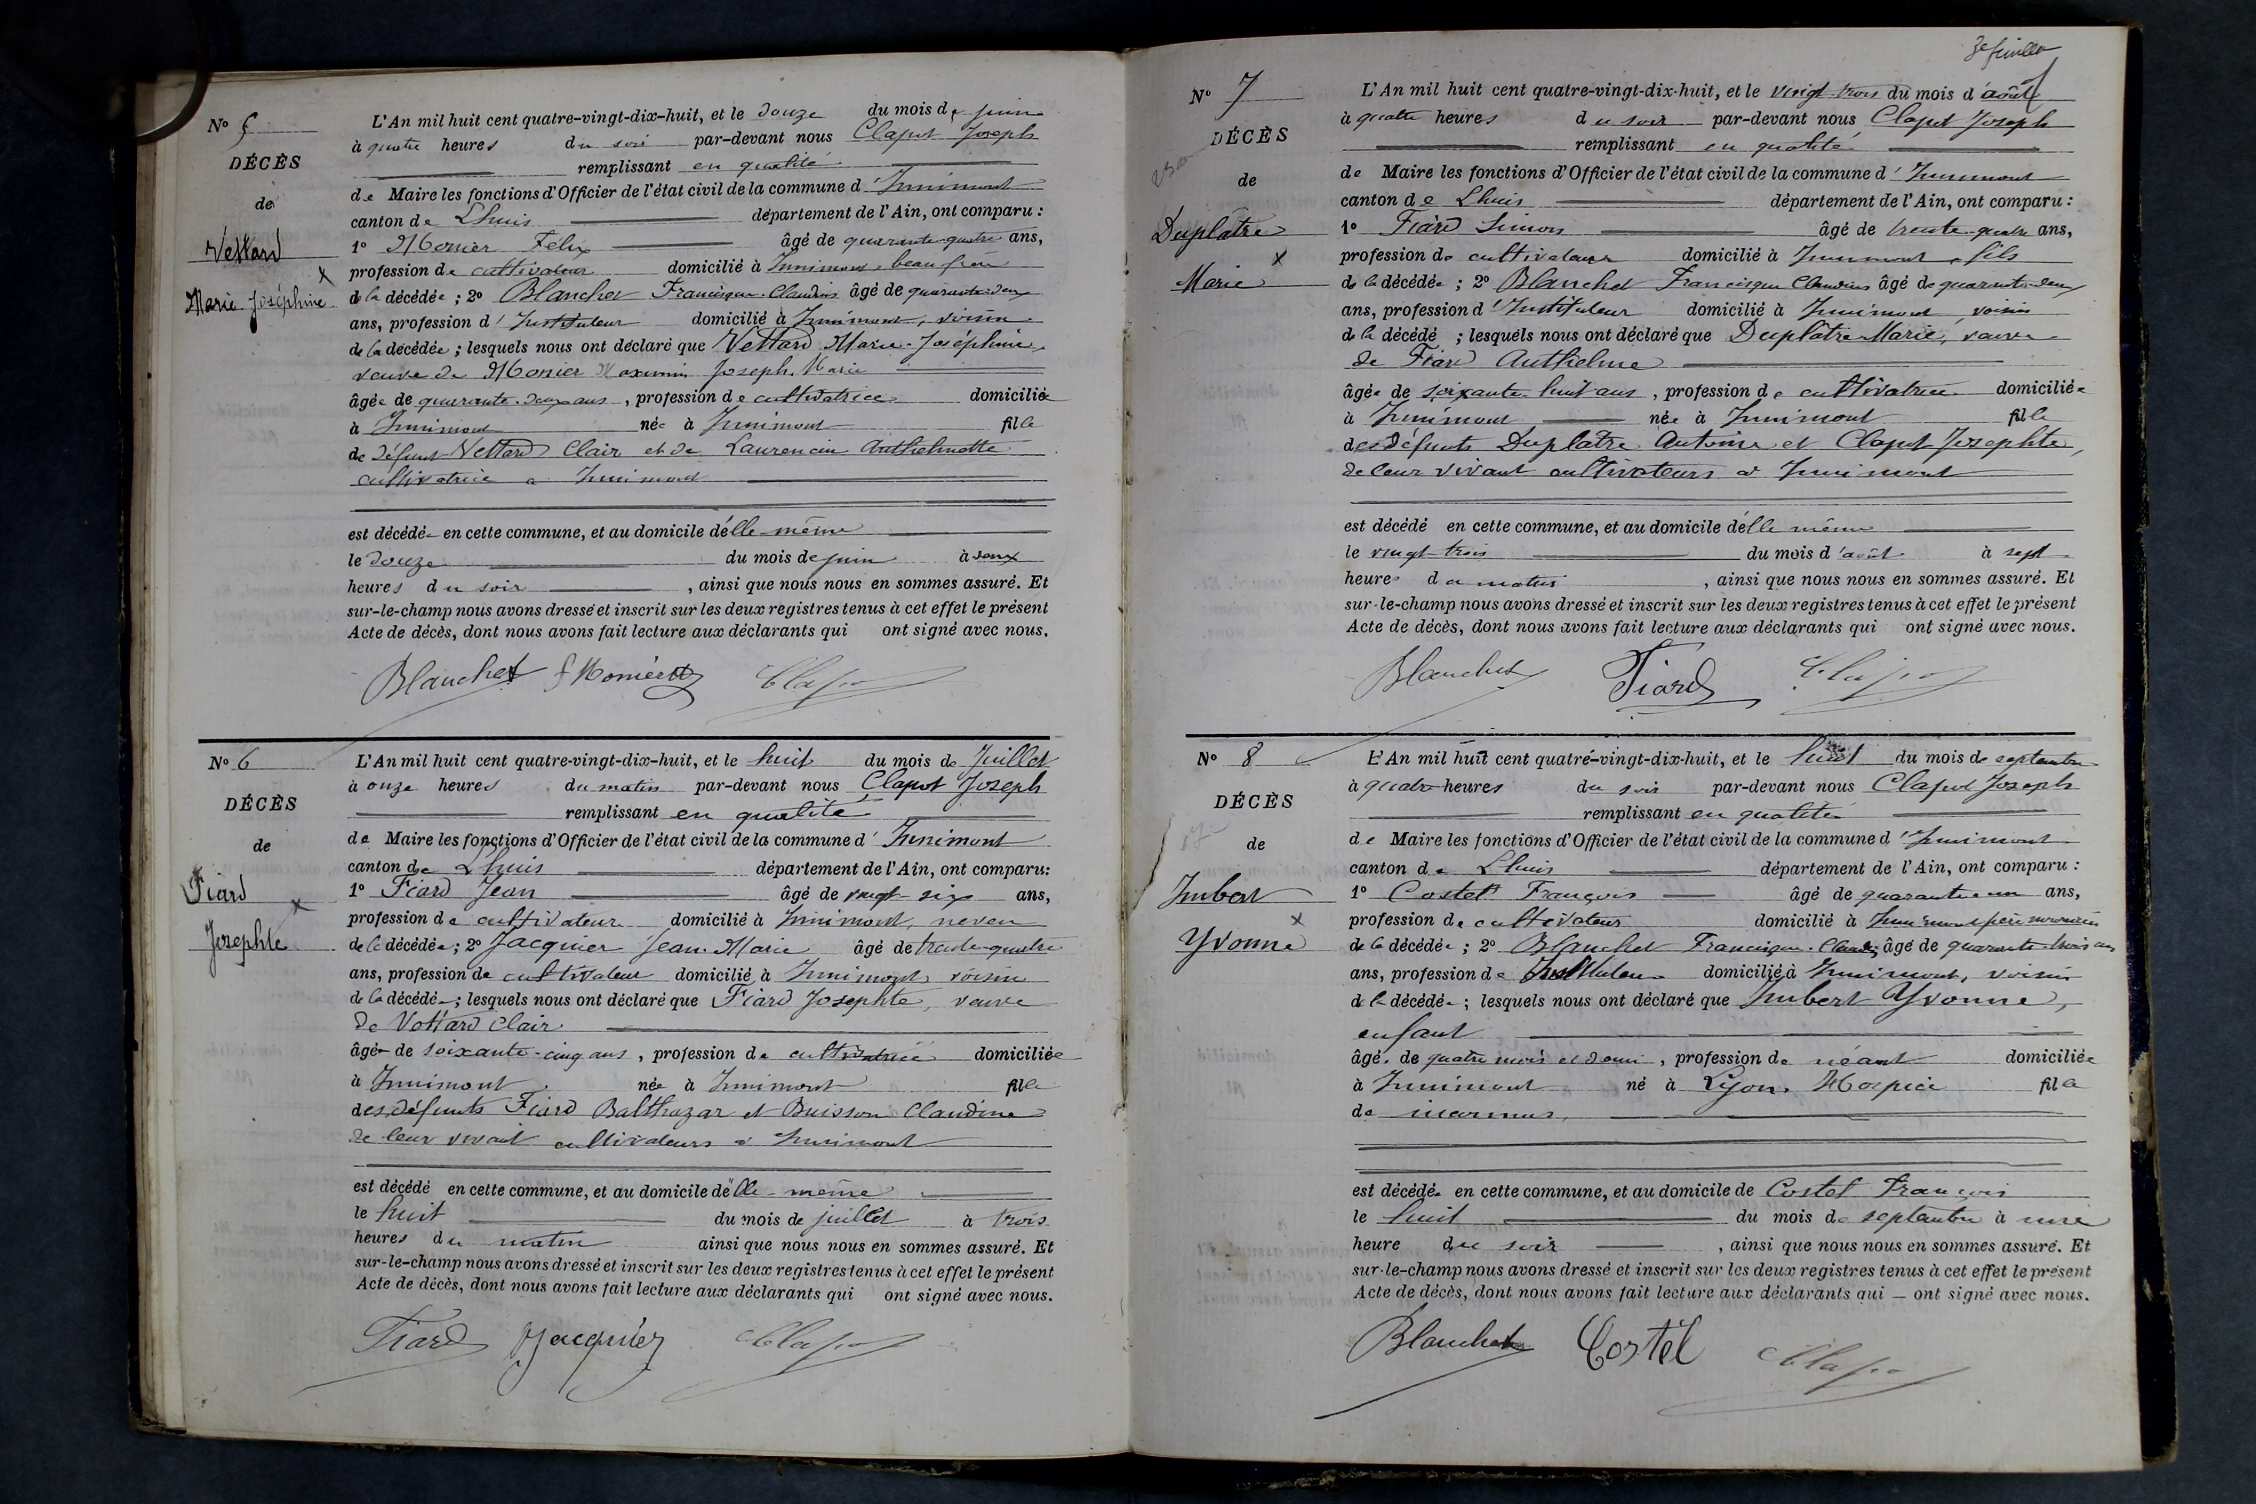 3e feuillet
N° 5
DÉCÈS
de
Vettard
Marie Joséphine
L'An mil huit cent quatre-vingt-dix-huit, et le douze du mois de juin
à quatre heures du soir par-devant nous Clapot Joseph
remplissant en qualité
de Maire les fonctions d'Officier de l'état civil de la commune d'Innimont
canton de Lhuis département de l'Ain, ont comparu :
1° Monier Felix âgé de quarante-quatre ans,
profession de cultivateur domicilié à Innimont, beau frère
de la décédée ; 2° Blanchet Francisque Claudius âgé de quarante-deux
ans, profession d'Instituteur domicilié à Innimont, voisin
de la décédée ; lesquels nous ont déclaré que Vettard Marie-Joséphine,
veuve de Monier Maximin Joseph Marie
âgée de quarante-deux ans, profession de cultivatrice domiciliée
à Innimont née à Innimont fille
de défunt Vettard Clair et de Laurencin Anthelmette
cultivatrice à Innimont
est décédée en cette commune, et au domicile d'elle-même
le douze du mois de juin à deux
heures du soir, ainsi que nous nous en sommes assuré. Et
sur-le-champ nous avons dressé et inscrit sur les deux registres tenus à cet effet le présent
Acte de décès, dont nous avons fait lecture aux déclarants qui ont signé avec nous.
Blanchet f Monier Clapot
N° 6
DÉCÈS
de
Fiard
Josephte
L'An mil huit cent quatre-vingt-dix-huit, et le huit du mois de Juillet
à onze heures du matin par-devant nous Clapot Joseph
remplissant en qualité
de Maire les fonctions d'Officier de l'état civil de la commune d'Innimont
canton de Lhuis département de l'Ain, ont comparu:
1° Fiard Jean âgé de vingt-six ans,
profession de cultivateur domicilié à Innimont, neveu
de la décédée; 2° Jacquier Jean-Marie âgé de trente-quatre
ans, profession de cultivateur domicilié à Innimont, voisin
de la décédée ; lesquels nous ont déclaré que Fiard Josephte, veuve
de Vettard Clair
âgée de soixante-cinq ans, profession de cultivatrice domiciliée
à Innimont née à Innimont fille
des défunts Fiard Balthazar et Buisson Claudine
de leur vivant cultivateurs à Innimont
est décédé en cette commune, et au domicile d'elle-même
le huit du mois de juillet à trois
heures du matin ainsi que nous nous en sommes assuré. Et
sur-le-champ nous avons dressé et inscrit sur les deux registres tenus à cet effet le présent
Acte de décès, dont nous avons fait lecture aux déclarants qui ont signé avec nous.
Fiard Jacquier Clapot
N° 7
DÉCÈS
de
Duplâtre
Marie
L'An mil huit cent quatre-vingt-dix-huit, et le vingt-trois du mois d'août
à quatre heures du soir par-devant nous Clapot Joseph
remplissant en qualité
de Maire les fonctions d'Officier de l'état civil de la commune d'Innimont
canton de Lhuis département de l'Ain, ont comparu :
1° Fiard Simon âgé de trente-quatre ans,
profession de cultivateur domicilié à Innimont, fils
de la décédée ; 2° Blanchet Francisque Claudius âgé de quarante-deux
ans, profession d'Instituteur domicilié à Innimont, voisin
de la décédé ; lesquels nous ont déclaré que Duplâtre Marie, veuve
de Fiard Anthelme
âgée de soixante-huit ans, profession de cultivatrice domiciliée
à Innimont née à Innimont fille
des défunts Duplâtre Antoine et Clapot Josephte,
de leur vivant cultivateurs à Innimont
est décédé en cette commune, et au domicile d'elle même
le vingt-trois du mois d'août à sept
heures du matin, ainsi que nous nous en sommes assuré. Et
sur-le-champ nous avons dressé et inscrit sur les deux registres tenus à cet effet le présent
Acte de décès, dont nous avons fait lecture aux déclarants qui ont signé avec nous.
Blanchet Fiard Clapot
N° 8
DÉCÈS
de
Imbert
Yvonne
L'An mil huit cent quatre-vingt-dix-huit, et le huit du mois de septembre
à quatre heures du soir par-devant nous Clapot Joseph
remplissant en qualité
de Maire les fonctions d'Officier de l'état civil de la commune d'Innimont
canton de Lhuis département de l'Ain, ont comparu :
1° Costel François âgé de quarante-un ans,
profession de cultivateur domicilié à Innimont père nourricier
de la décédée ; 2° Blanchet Francisque-Claudius âgé de quarante-trois ans
ans, profession de Instituteur domicilié à Innimont, voisin
de la décédée ; lesquels nous ont déclaré que Imbert Yvonne,
enfant
âgée de quatre mois et demi, profession de néant domiciliée
à Innimont né à Lyon, Hospice fille
de inconnus,
est décédée en cette commune, et au domicile de Costel François
le huit du mois de septembre à une
heure du soir, ainsi que nous nous en sommes assuré. Et
sur-le-champ nous avons dressé et inscrit sur les deux registres tenus à cet effet le présent
Acte de décès, dont nous avons fait lecture aux déclarants qui — ont signé avec nous.
Blanchet Costel Clapot